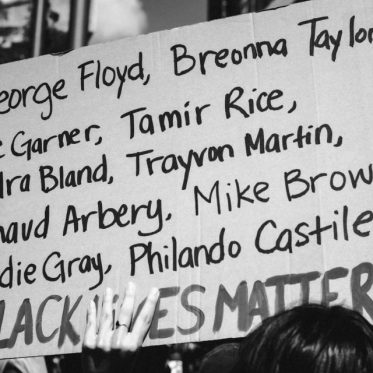 eorge Floyd, Breonna Taylor
c Garner, Tamir Rice,
dra Bland, Trayvon Martin,
maud Arbery, Mike Brow
die Gray, Philando Castile
LACK LIVES MATTER